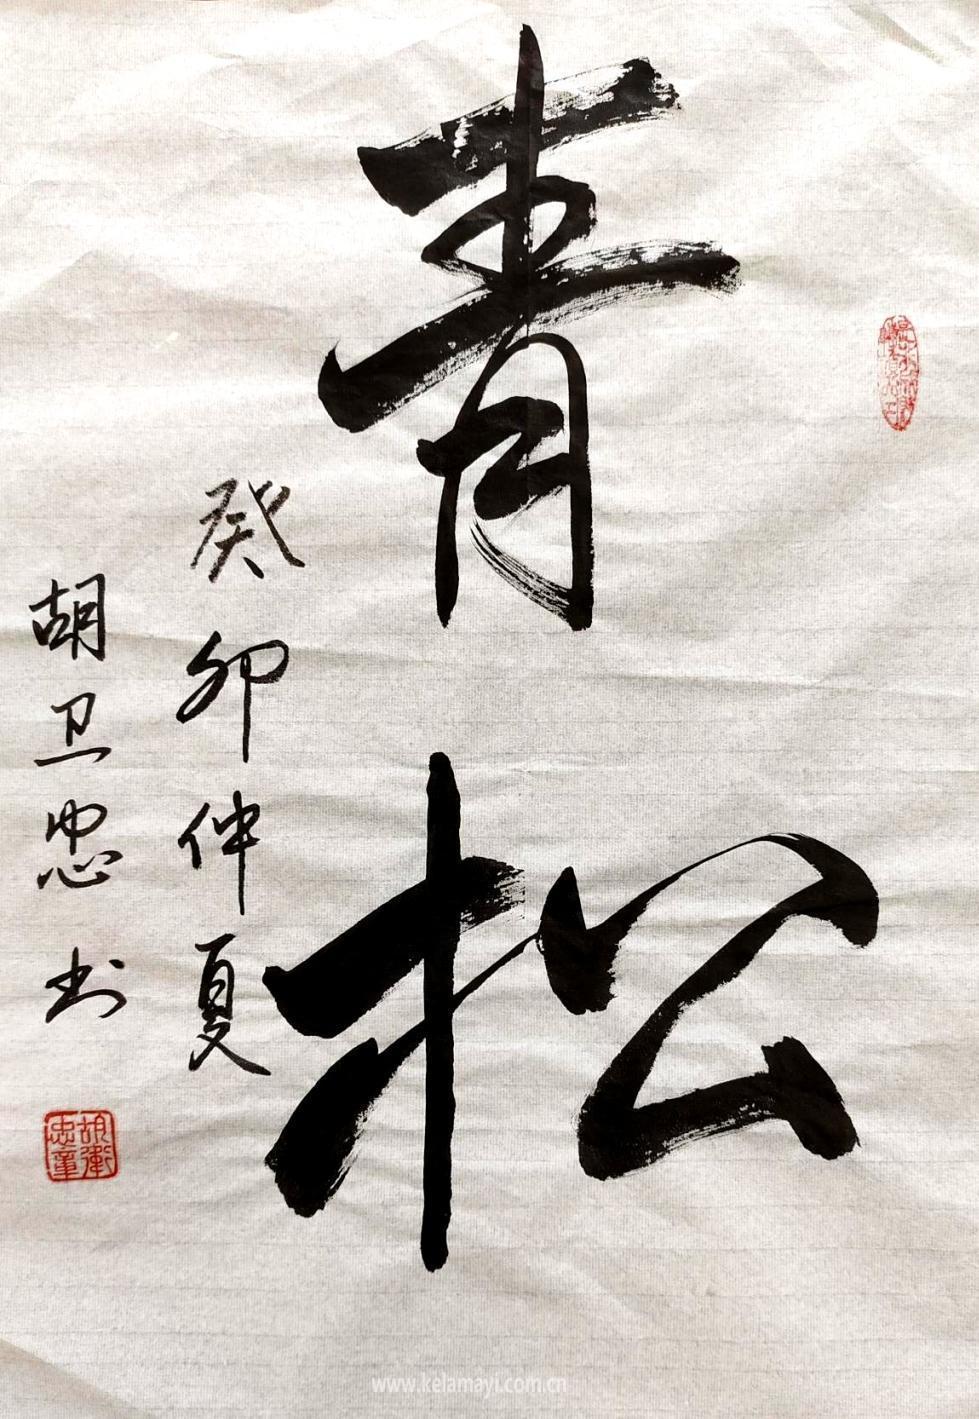 青松
癸卯仲夏
胡卫忠书
胡卫忠童
www.kelamayi.com.cn